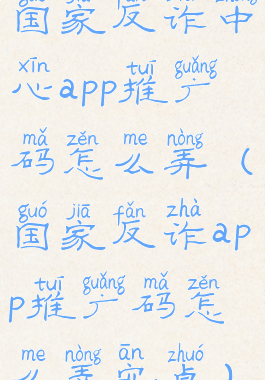 guó jiā fǎn zhà zhōng
国家反诈中
xīn tuī guǎng
心app推广
mǎ zěn me nòng
码怎么弄（
guó jiā fǎn zhà
国家反诈ap
tuī guǎng mǎ zěn
p推广码怎
me nòng ān zhuó
么弄安卓）